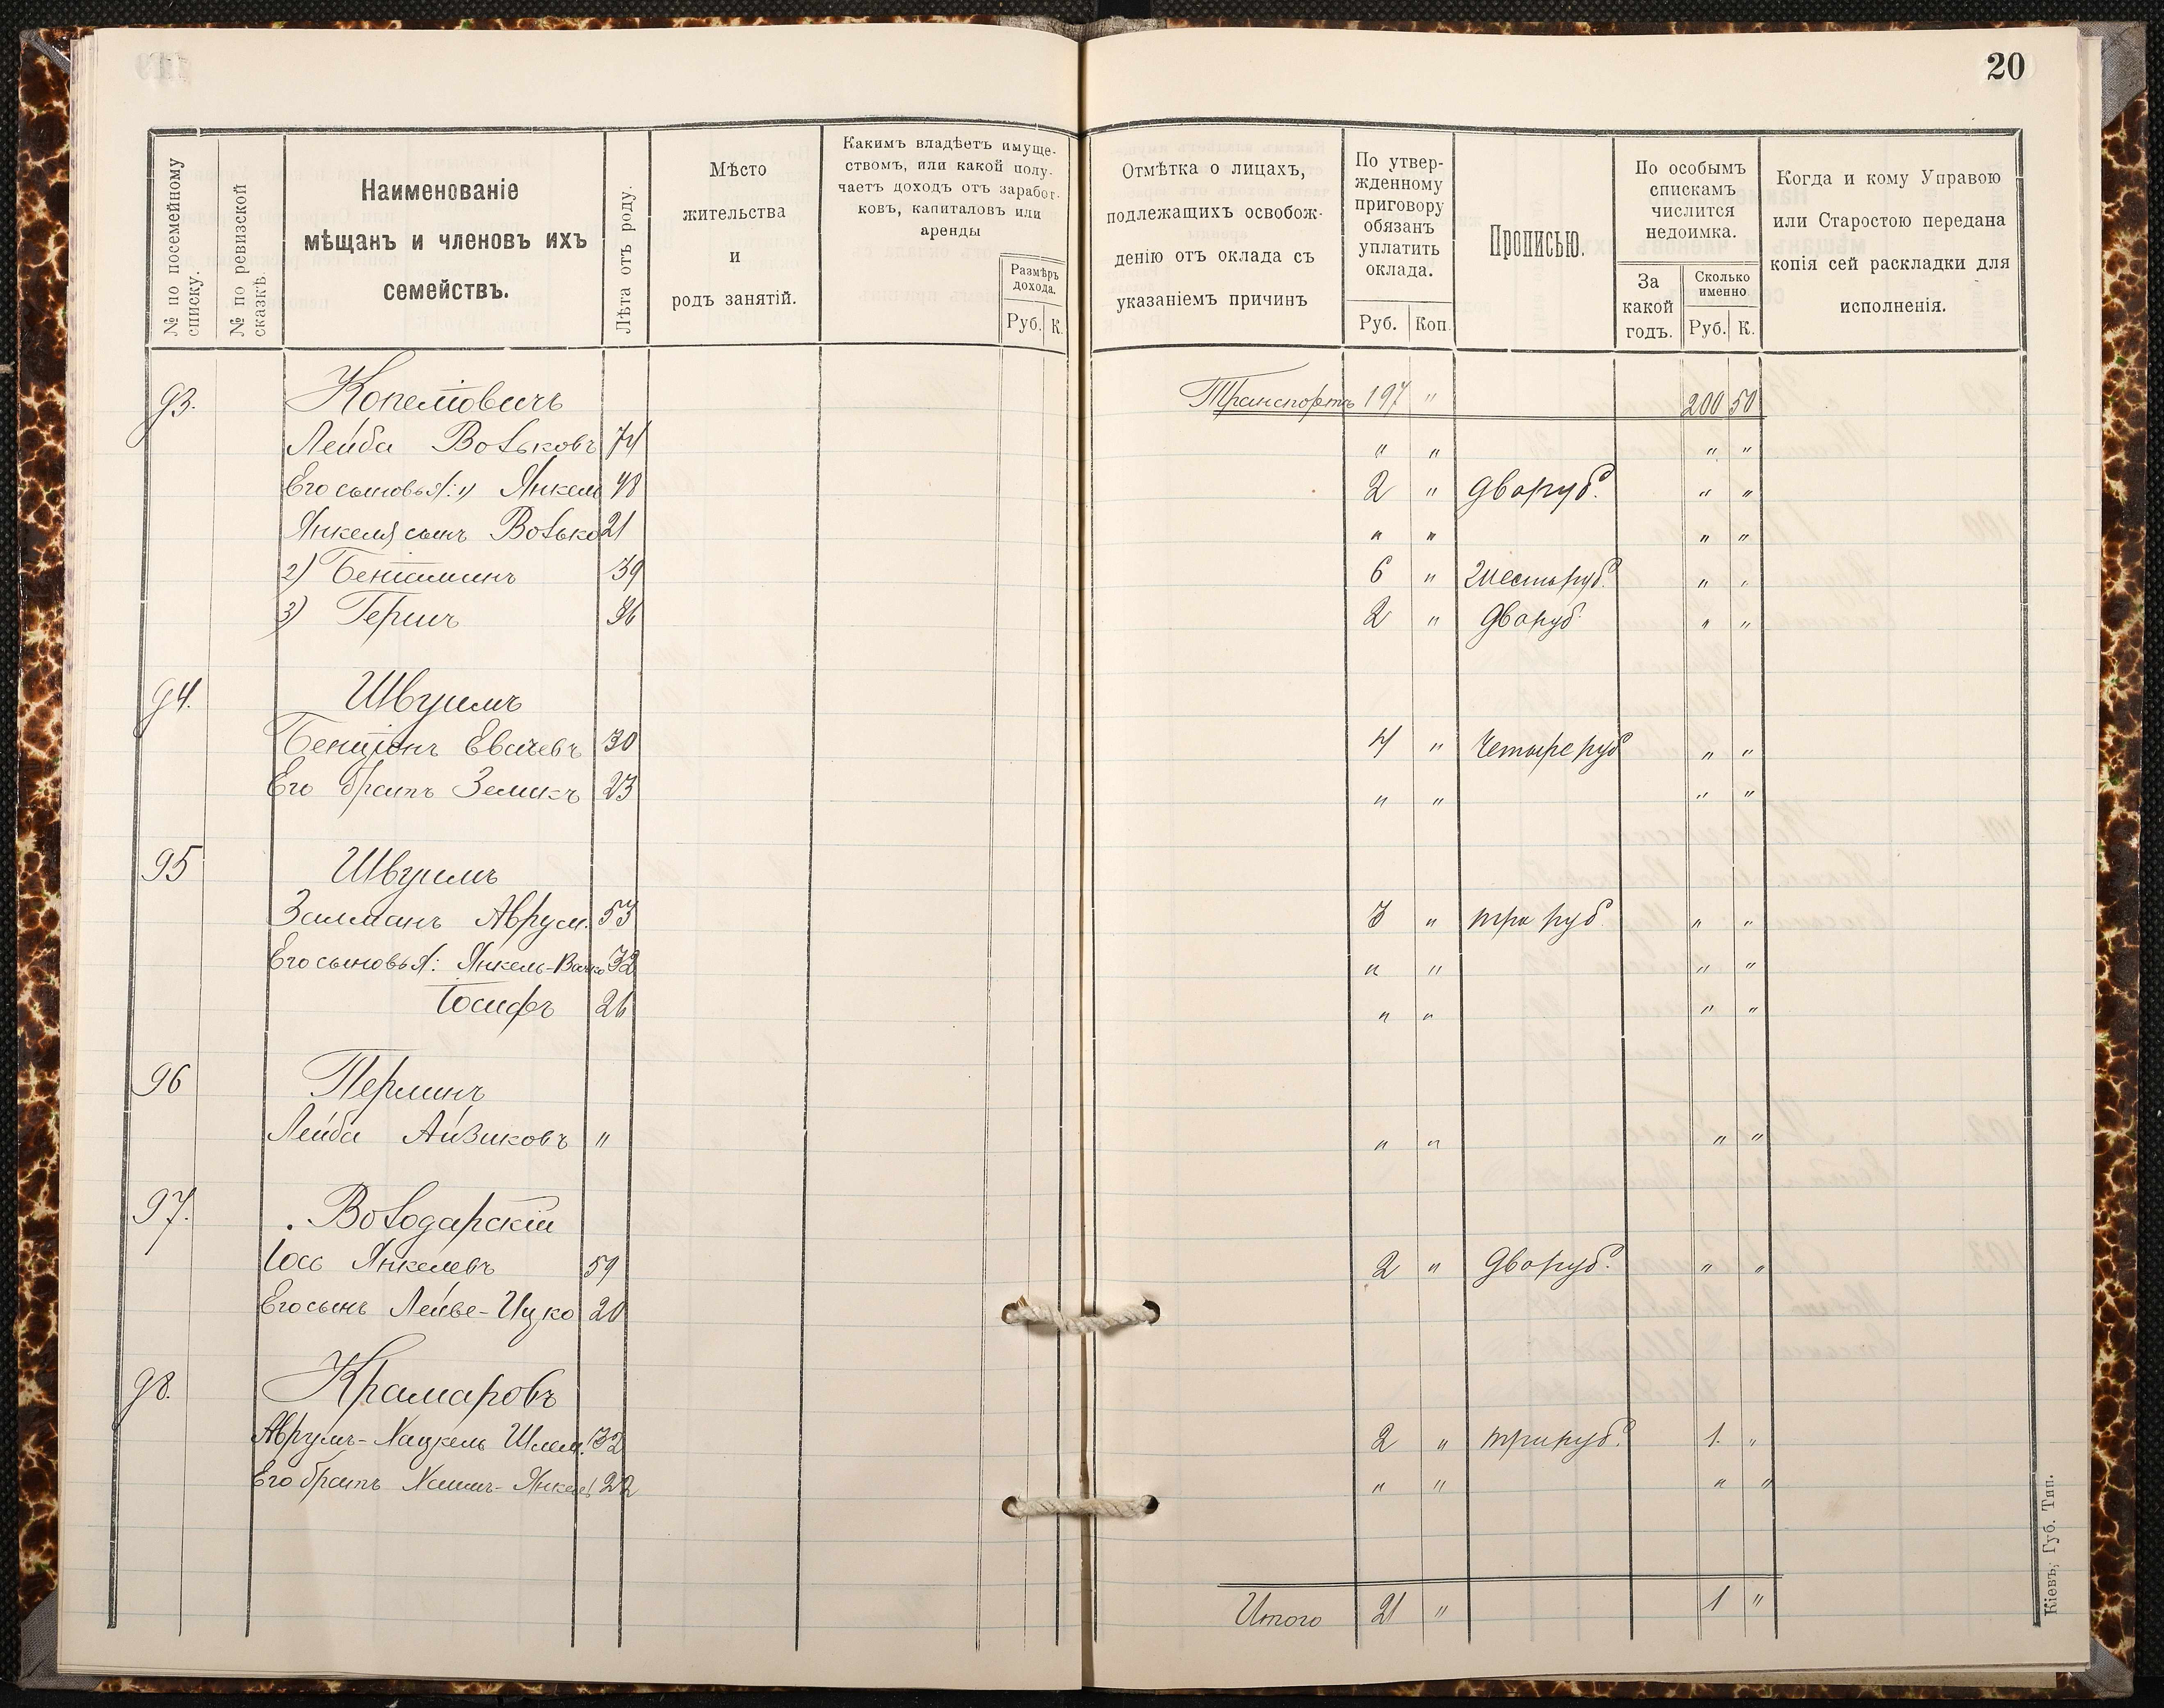 20
№ по посемейному списку.
№ по ревизской сказкѣ.
Наименованіе
мѣщанъ и членовъ ихъ
семействъ.
Лѣта отъ роду.
Мѣсто
жительства
и
родъ занятій.
Какимъ владѣетъ имуще-
ствомъ, или какой полу-
чаетъ доходъ отъ заработ-
ковъ, капиталовъ или
аренды
Размѣръ
дохода.
Руб. К.
Отмѣтка о лицахъ,
подлежащихъ освобож-
денію отъ оклада съ
указаніемъ причинъ
По утвер-
жденному
приговору
обязанъ
уплатить
оклада.
Руб. Коп.
Прописью.
По особымъ
спискамъ
числится
недоимка.
За
какой
годъ.
Сколько
именно
Руб. К.
Когда и кому Управою
или Старостою передана
копія сей раскладки для
исполненія.
93. Копеліовичъ Транспортъ 197 " 200 50
Лейба Вольковъ 74 " " " "
Его сыновья: 1) Янкель 48 2 " два руб. " "
Янкеля сынъ Волько 21 " " " "
2) Беніаминъ 39 6 " Шесть руб. " "
3) Гершъ 36 2 " Два руб. " "
94. Швуимъ
Бенціонъ Евачевъ 30 4 " Четыре руб " "
Его братъ Зеликъ 23 " " " "
95 Швуимъ
Залманъ Аврум. 53 3 " три руб " "
Его сыновья: Янкель- 32 " " " "
Іосифъ 26 " " " "
96 Перлинъ
Лейба Айзиковъ " " " " "
97. Володарскій
Іось Янкелевъ 59 2 " Два руб. " "
Его сынъ Лейве-Ицко 20
98. Крамаровъ
Аврумъ-Хацкель Шлем. 32 2 " три руб. 1. "
Его братъ Хаимъ-Янкель 22 " " " "
Итого 21 " 1 "
Кіевъ, Губ. Тип.